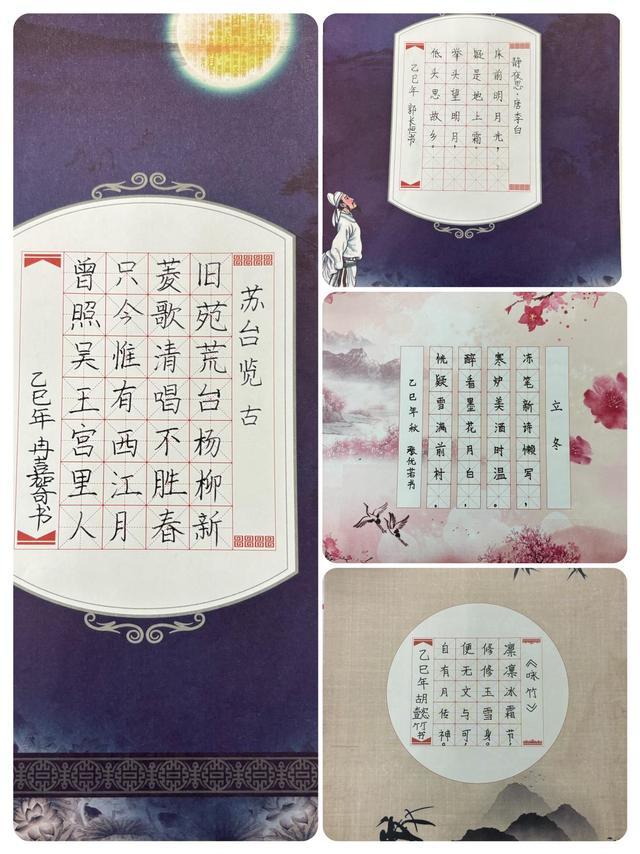 苏台览古
旧苑荒台杨柳新
菱歌清唱不胜春
只今惟有西江月
曾照吴王宫里人
乙巳年 冉嘉奇书
静夜思·唐李白
床前明月光，
疑是地上霜。
举头望明月，
低头思故乡。
乙巳年 郭长 书
立冬
冻笔新诗懒写，
寒炉美酒时温。
醉看墨花月白，
恍疑雪满前村。
乙巳年秋 优若书
《咏竹》
凛凛冰霜节，
修修玉雪身。
便无文与可，
自有月传神。
乙巳年胡懿竹书